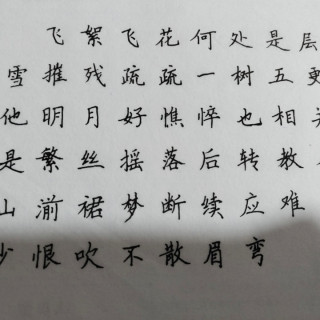 飞絮飞花何处是层
雪摧残疏疏一树五更
他明月好憔悴也相
是繁丝摇落后转教
山湔裙梦断续应难
少恨吹不散眉弯